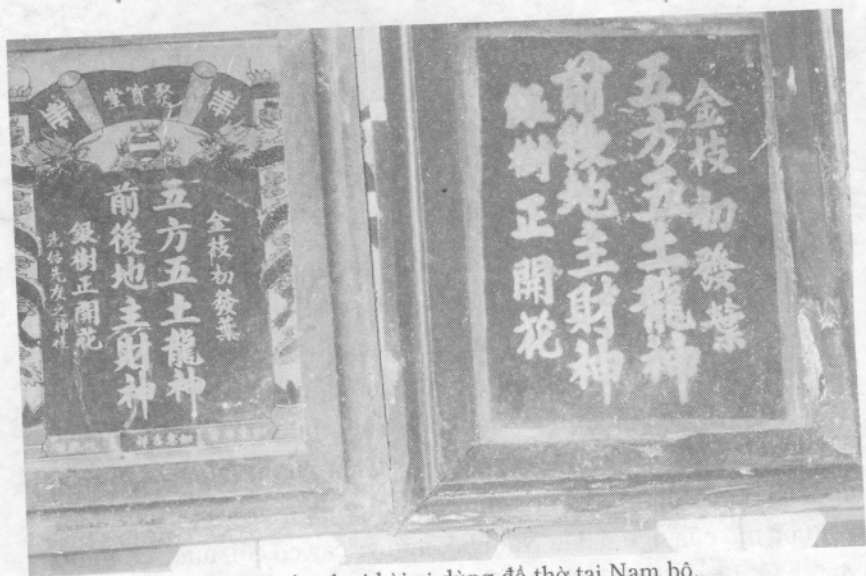 聚寶堂
金枝初發葉
五方五土龍神
前後地主財神
銀樹正開花
金枝初發葉
五方五土龍神
前後地主財神
銀樹正開花
bài vị dùng để thờ tại Nam bộ.